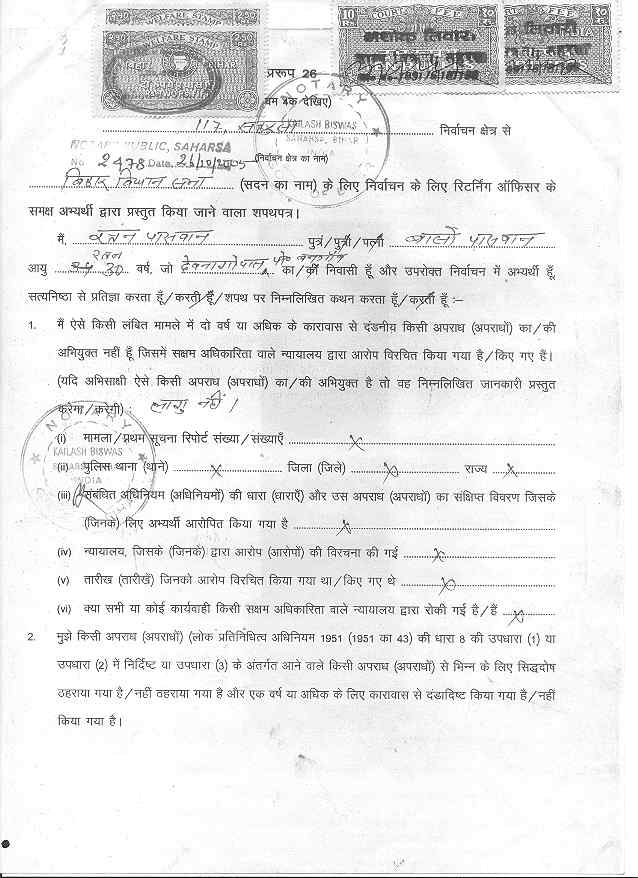 WELFARE STAMP
COURT FEE
प्ररूप 26
NOTARY
KAILASH BISWAS
SAHARSA, BIHAR
INDIA
117, सहरसा निर्वाचन क्षेत्र से
NOTARY PUBLIC, SAHARSA
No 2478 Date 26/10/2005 (निर्वाचन क्षेत्र का नाम)
बिहार विधान सभा (सदन का नाम) के लिए निर्वाचन के लिए रिटर्निंग ऑफिसर के
समक्ष अभ्यर्थी द्वारा प्रस्तुत किया जाने वाला शपथपत्र।
मैं, रतन पासवान पुत्र/पुत्री/पत्नी बालो पासवान
आयु 30 वर्ष, जो देवनागोपाल, पो० का/की निवासी हूँ और उपरोक्त निर्वाचन में अभ्यर्थी हूँ,
सत्यनिष्ठा से प्रतिज्ञा करता हूँ/करती हूँ/शपथ पर निम्नलिखित कथन करता हूँ/करती हूँ :–
1. मैं ऐसे किसी लंबित मामले में दो वर्ष या अधिक के कारावास से दंडनीय किसी अपराध (अपराधों) का/की
अभियुक्त नहीं हूँ जिसमें सक्षम अधिकारिता वाले न्यायालय द्वारा आरोप विरचित किया गया है/किए गए हैं।
(यदि अभिसाक्षी ऐसे किसी अपराध (अपराधों) का/की अभियुक्त है तो वह निम्नलिखित जानकारी प्रस्तुत
करेगा/करेगी) : लागु नहीं।
NOTARY
KAILASH BISWAS
INDIA
(i) मामला/प्रथम सूचना रिपोर्ट संख्या/संख्याएँ x
(ii) पुलिस थाना (थाने) x जिला (जिले) x राज्य x
(iii) संबंधित अधिनियम (अधिनियमों) की धारा (धाराएँ) और उस अपराध (अपराधों) का संक्षिप्त विवरण जिसके
(जिनके) लिए अभ्यर्थी आरोपित किया गया है x
(iv) न्यायालय, जिसके (जिनके) द्वारा आरोप (आरोपों) की विरचना की गई x
(v) तारीख (तारीखें) जिनको आरोप विरचित किया गया था/किए गए थे x
(vi) क्या सभी या कोई कार्यवाही किसी सक्षम अधिकारिता वाले न्यायालय द्वारा रोकी गई है/हैं x
2. मुझे किसी अपराध (अपराधों) (लोक प्रतिनिधित्व अधिनियम 1951 (1951 का 43) की धारा 8 की उपधारा (1) या
उपधारा (2) में निर्दिष्ट या उपधारा (3) के अंतर्गत आने वाले किसी अपराध (अपराधों) से भिन्न के लिए सिद्धदोष
ठहराया गया है/नहीं ठहराया गया है और एक वर्ष या अधिक के लिए कारावास से दंडादिष्ट किया गया है/नहीं
किया गया है।